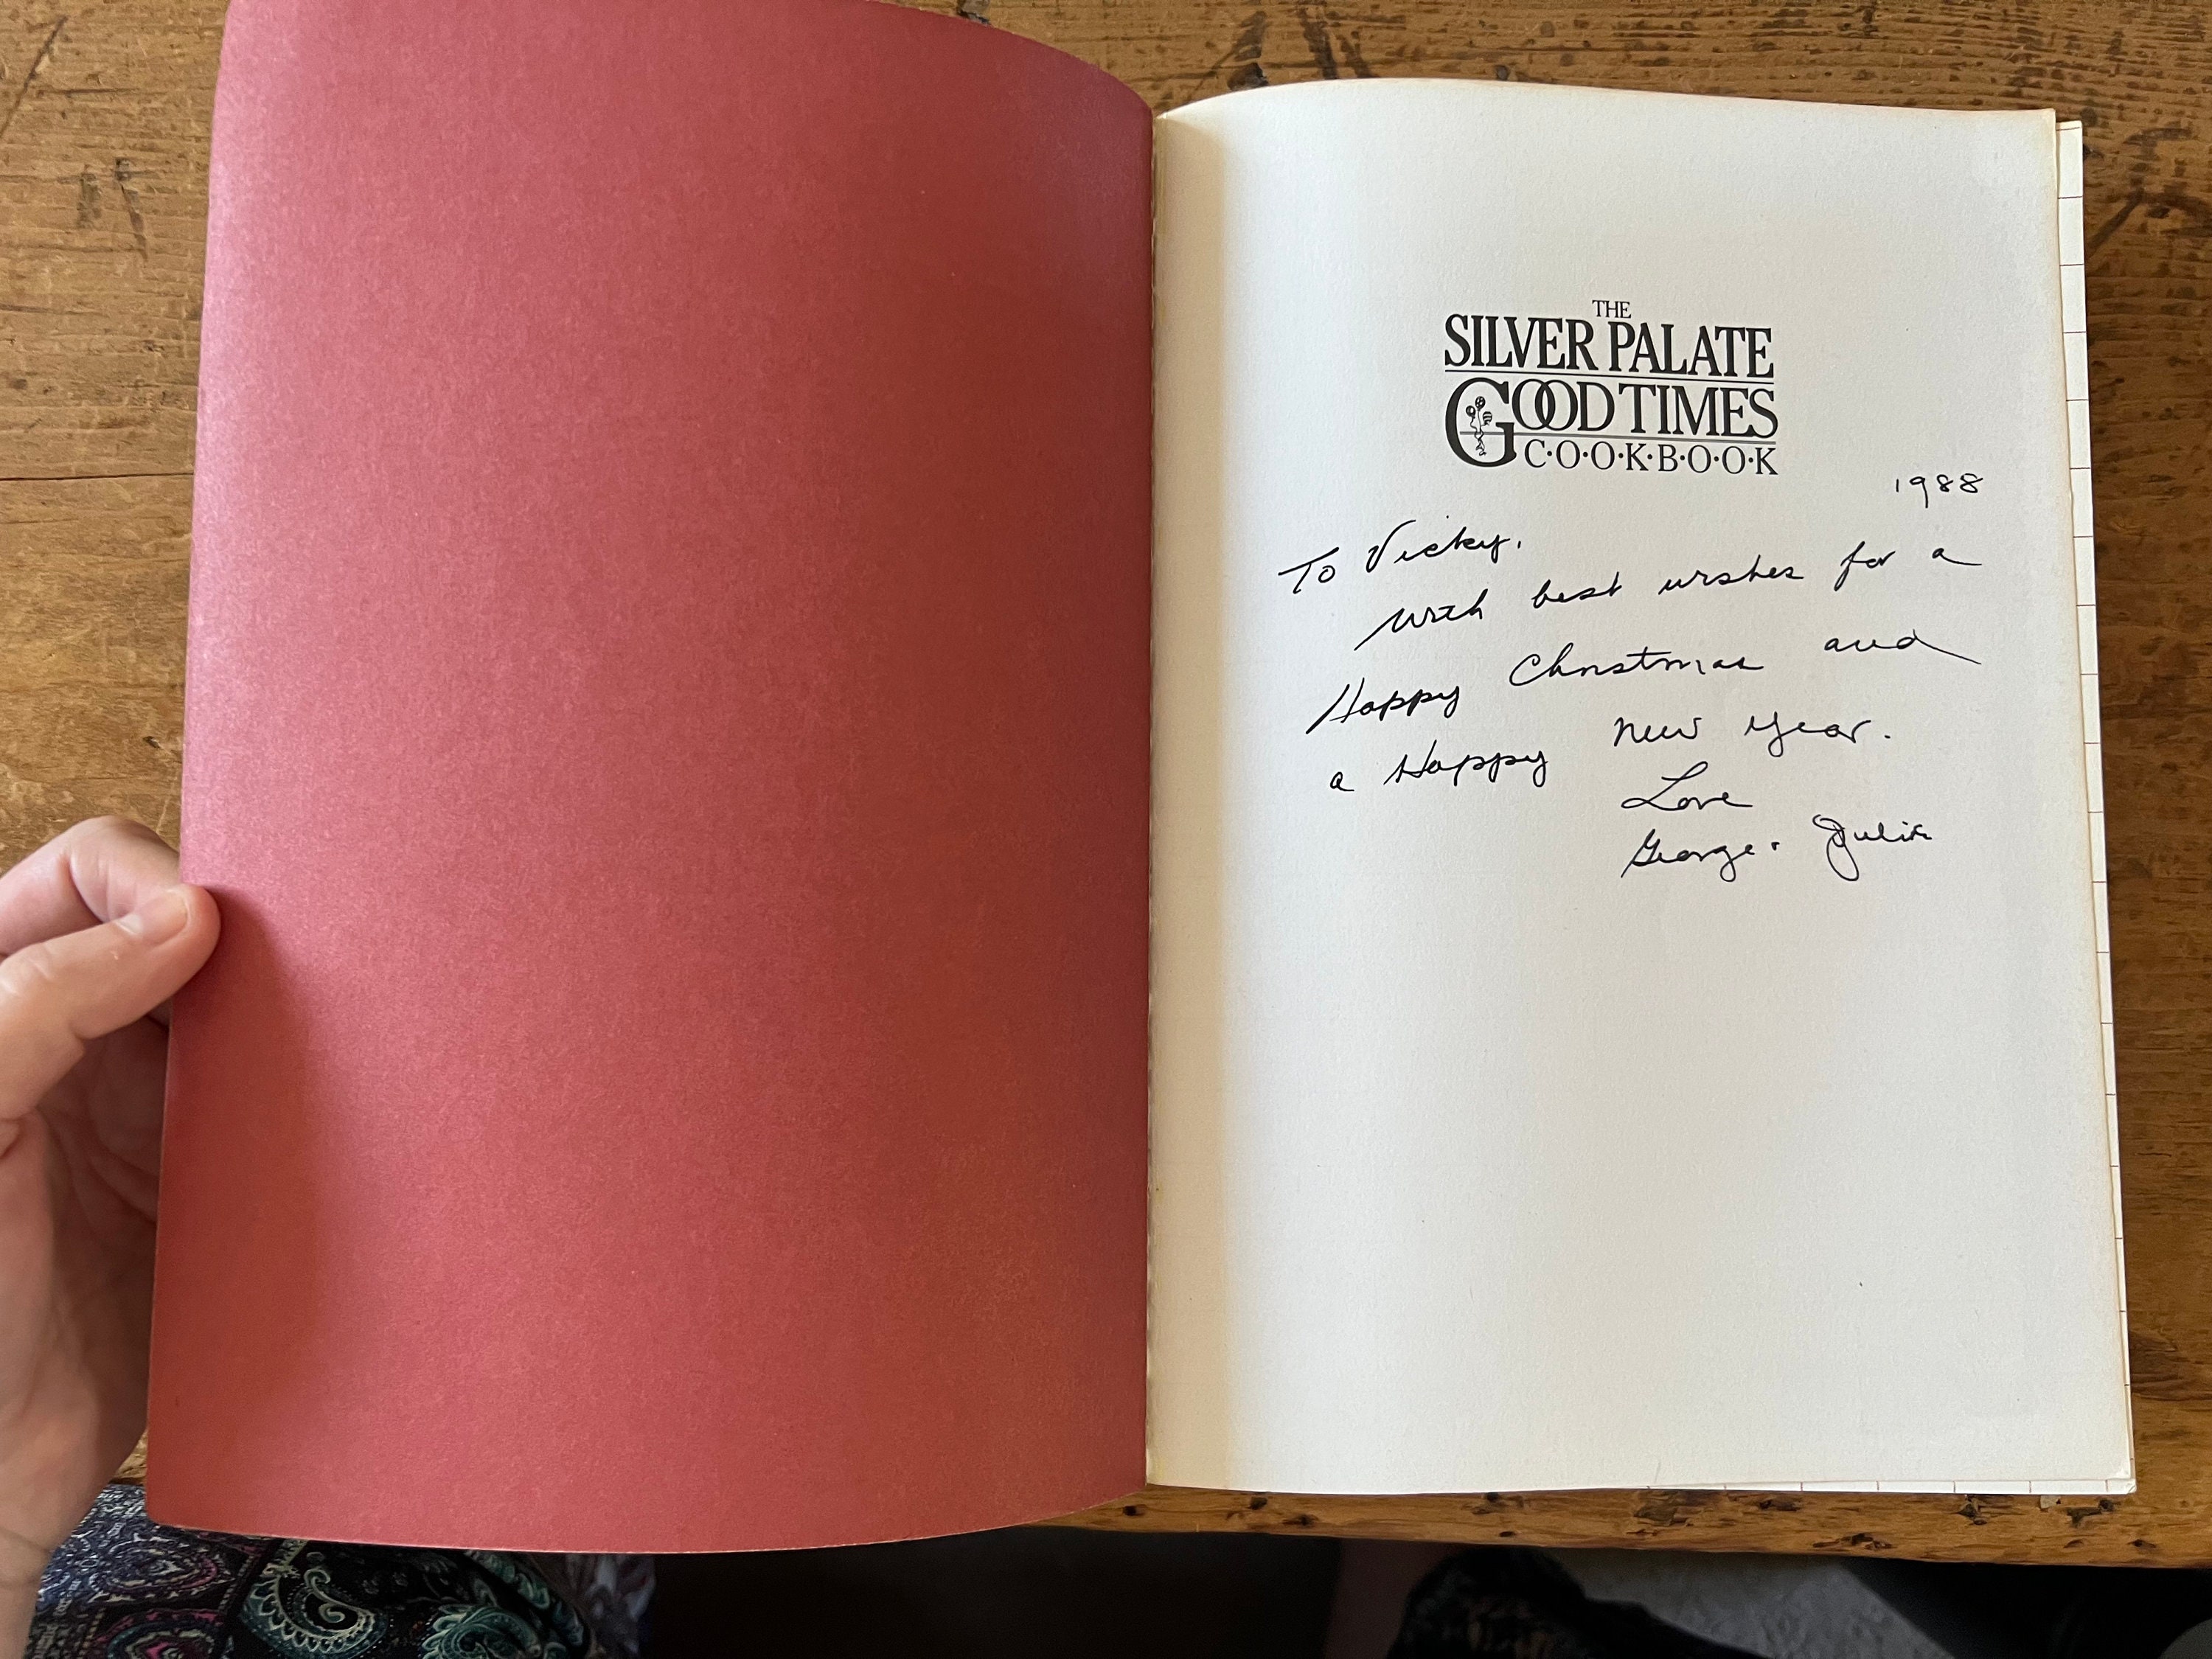 THE
SILVER PALATE
GOOD TIMES
C·O·O·K·B·O·O·K
1988
To Vicky,
with best wishes for a
Happy Christmas and
a Happy New Year.
Love
George · Julia